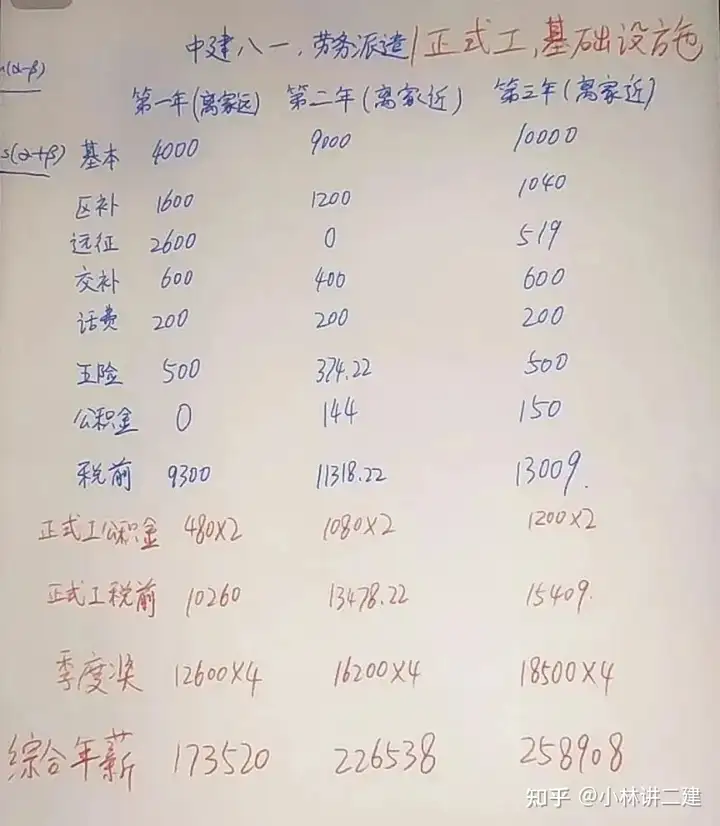 中建八一，劳务派遣/正式工，基础设施
(α-β)
第一年(离家远) 第二年(离家近) 第三年(离家近)
s(α+β) 基本 4000 9000 10000
区补 1600 1200 1040
远征 2600 0 519
交补 600 400 600
话费 200 200 200
五险 500 374.22 500
公积金 0 144 150
税前 9300 11318.22 13009.
正式工公积金 480×2 1080×2 1200×2
正式工税前 10260 13478.22 15409.
季度奖 12600×4 16200×4 18500×4
综合年薪 173520 226538 258908
知乎 @小林讲二建